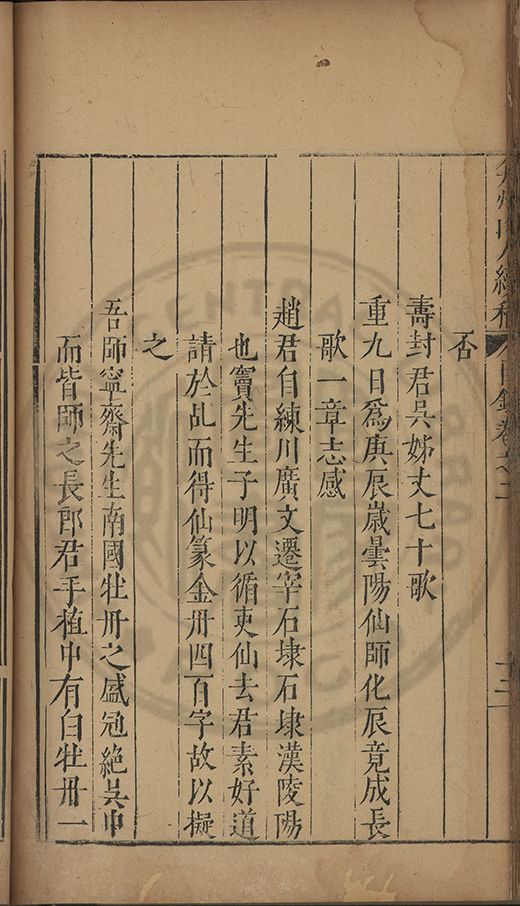 否
壽封君吳姊丈七十歌
重九日爲庚辰歲曇陽仙師化辰竟成長
歌一章志感
趙君自練川廣文遷宰石埭石埭漢陵陽
也竇先生子明以循吏仙去君素好道
請於乩而得仙篆金丹四百字故以擬
之
吾師寧齋先生南國牡丹之盛冠絶吳中
而皆師之長郎君手植中有白牡丹一